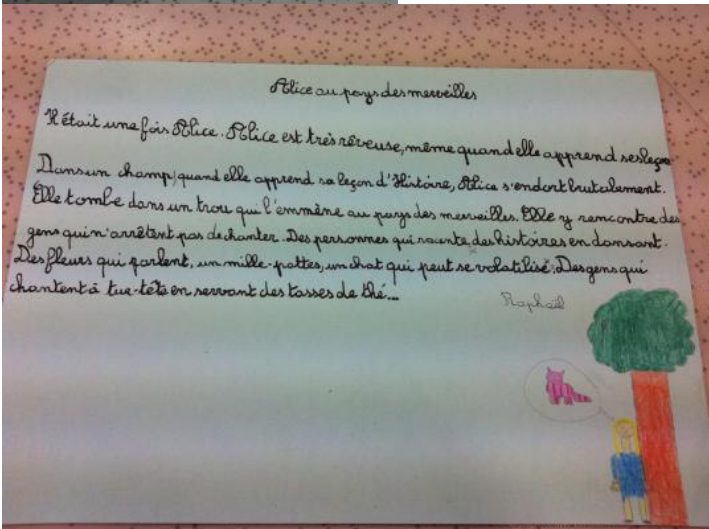 Alice au pays des merveilles
Il était une fois Alice. Alice est très rêveuse, même quand elle apprend ses leçon
Dans un champ, quand elle apprend sa leçon d'Histoire, Alice s'endort brutalement.
Elle tombe dans un trou qui l'emmène au pays des merveilles. Elle y rencontre des
gens qui n'arrêtent pas de chanter. Des personnes qui raconte des histoires en dansant.
Des fleurs qui parlent, un mille-pattes, un chat qui peut se volatilisé. Des gens qui
chantent à tue-tête en servant des tasses de thé...
Raphaël